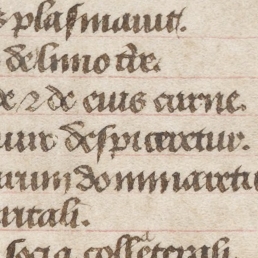 s plasmauit.
de limo tr̄e.
de ⁊ de eius carne.
despiceretur.
arum dominaretu
uitali.
socia coll̄aterali.